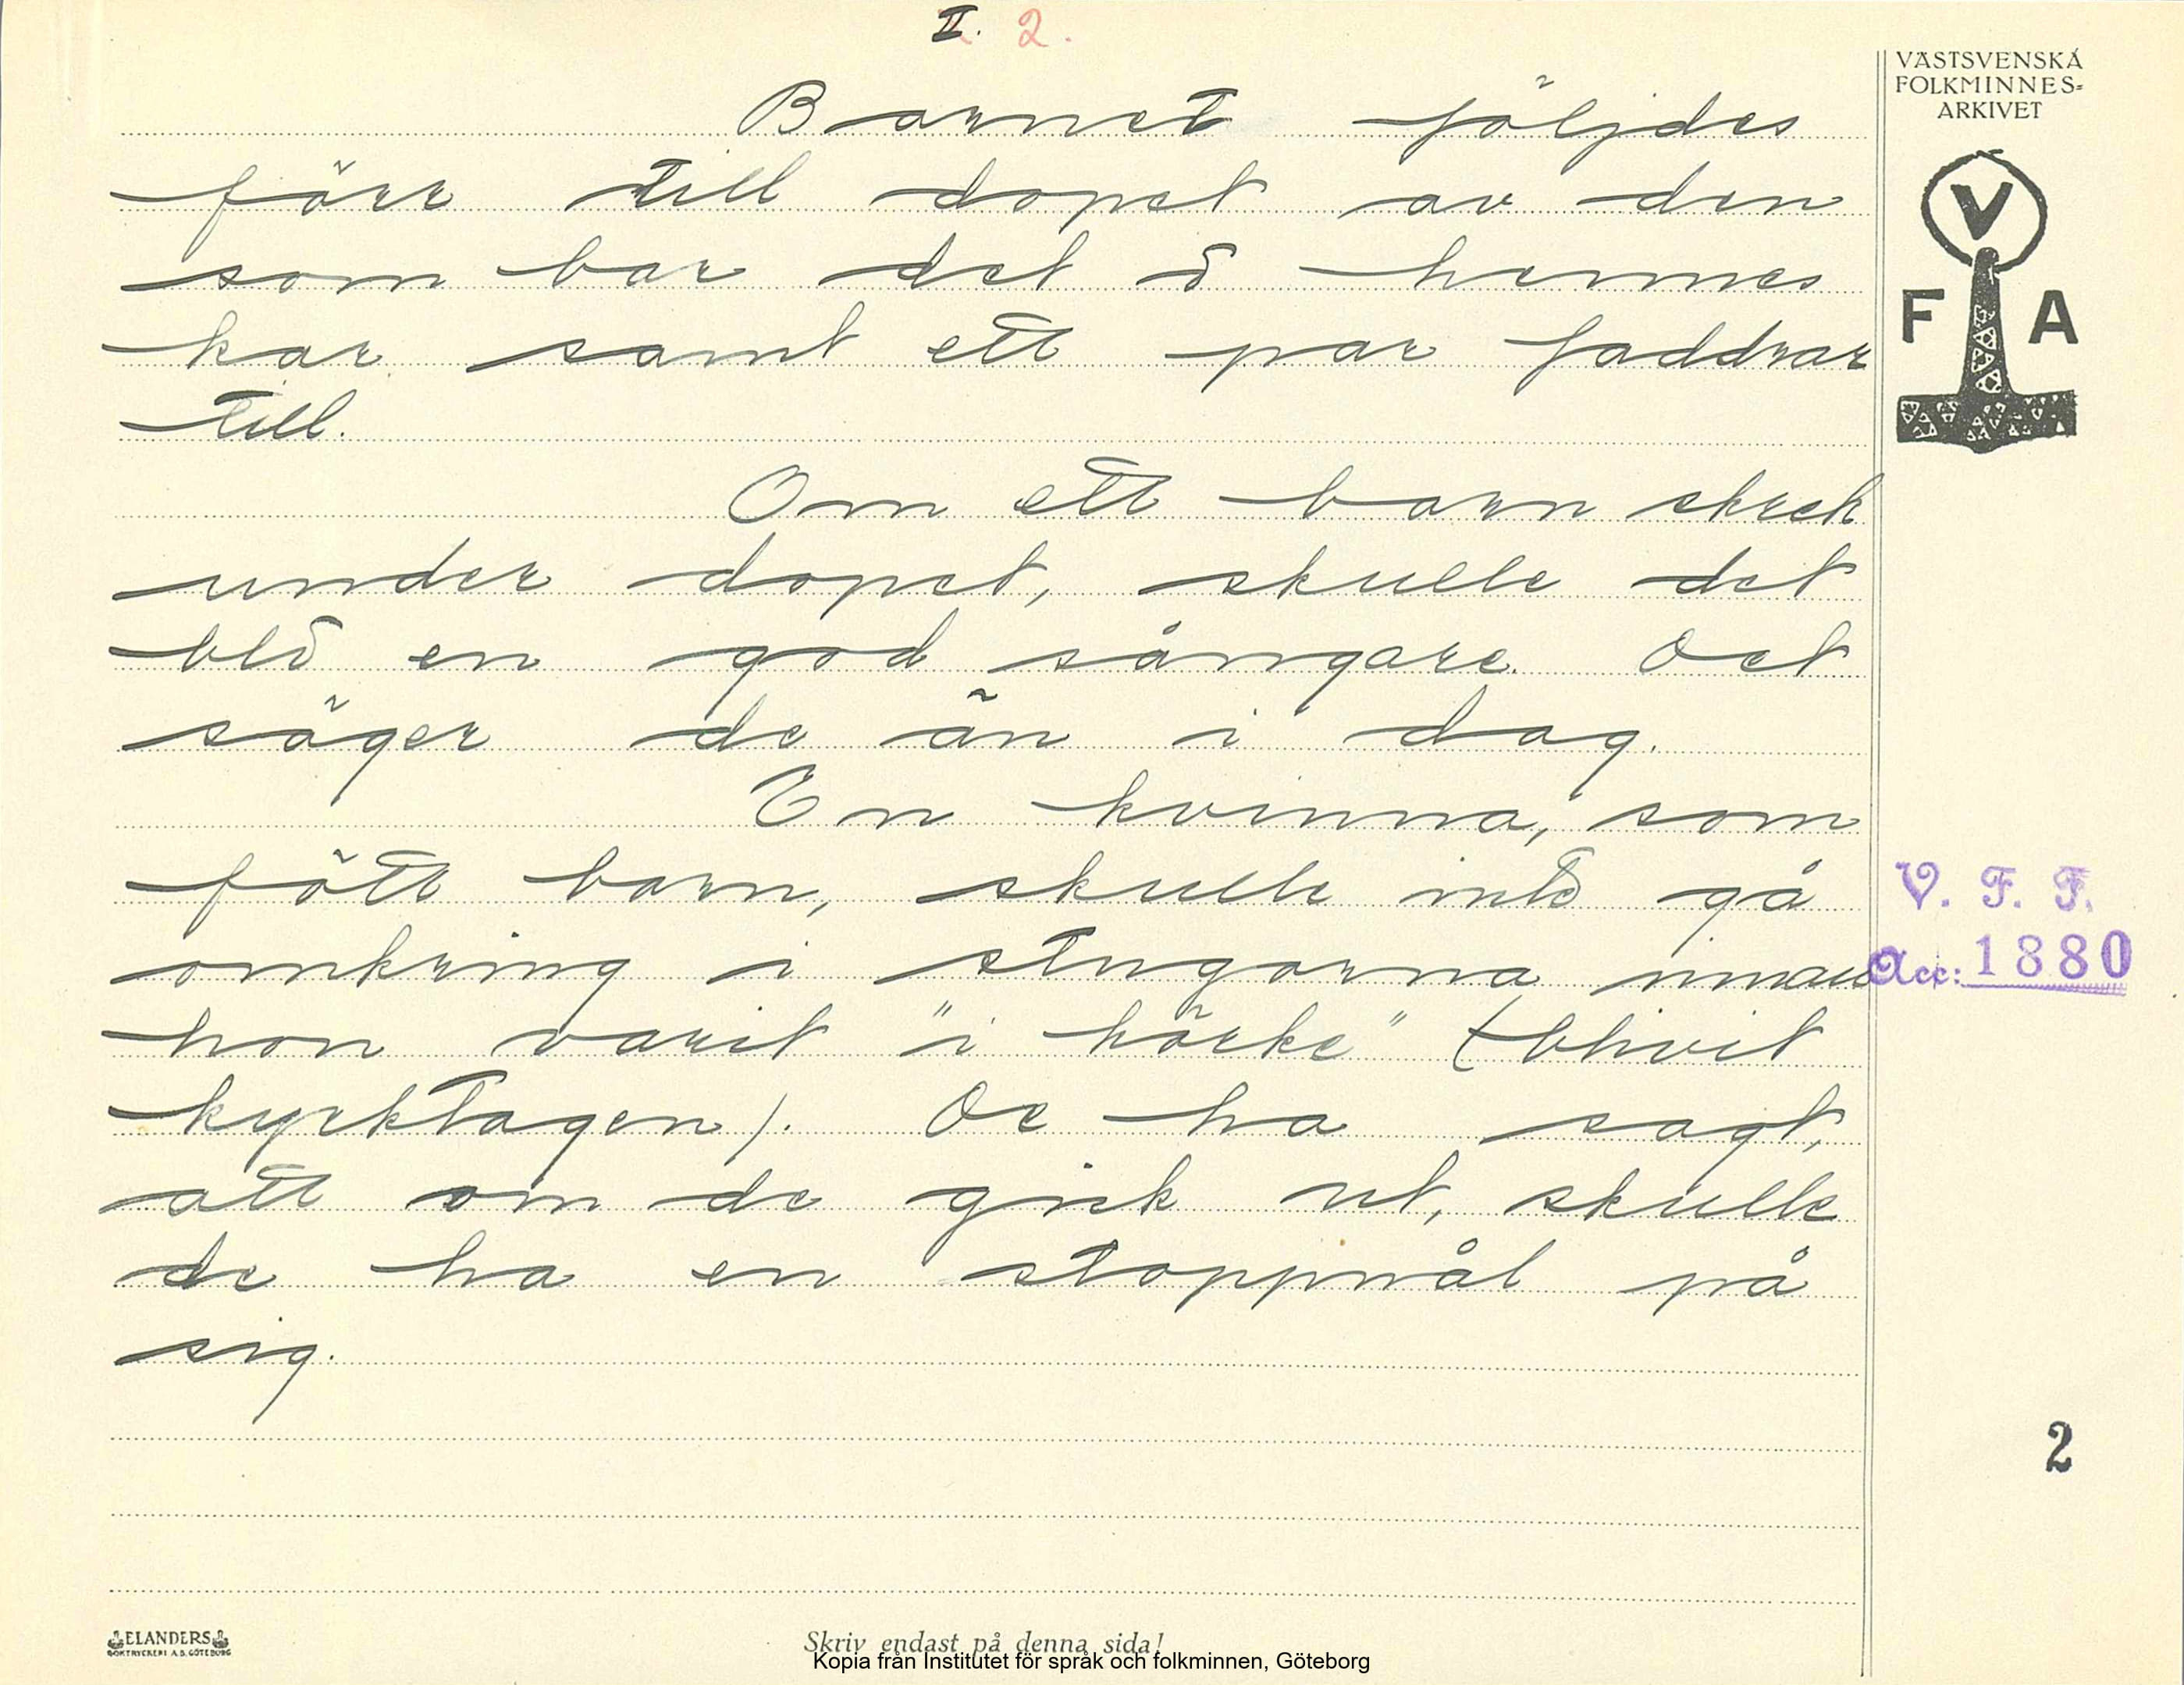 II. 2.
VÄSTSVENSKA
FOLKMINNES-
ARKIVET
V
F A
Barnet följdes
förr till dopet av den
som bar det å hennes
kar samt ett par faddrar
till.
Om ett barn skrek
under dopet, skulle det
blå en god sångare. Det
säger de än i dag.
En kvinna, som
fött barn, skulle intå gå
omkring i stugorna innan
hon varit "i körke" (blivit
kyrktagen). De ha sagt,
att om de gick ut, skulle
de ha en stoppnål på
sig.
V. F. F.
Acc: 1880
2
ELANDERS
BOKTRYCKERI A.B. GÖTEBORG
Skriv endast på denna sida!
Kopia från Institutet för språk och folkminnen, Göteborg